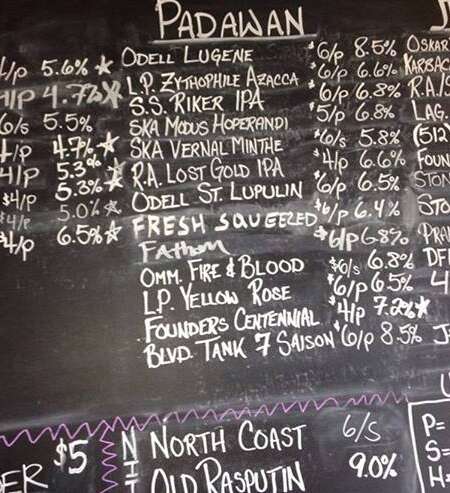 PADAWAN J
4/p 5.6% ☆
4/p 4.7% ☆
6/s 5.5%
4/p 4.7% ☆
4/p 5.3%
$4/p 5.3% ☆
$4/p 5.0% ☆
$4/p 6.5% ☆
ODELL LUGENE $6/p 8.5%
L.P. ZYTHOPHILE AZACCA $6/p 6.6%
S.S. RIKER IPA $6/p 6.8%
SKA MODUS HOPERANDI $5/p 6.8%
SKA VERNAL MINTHE $6/s 5.8%
R.A. LOST GOLD IPA $4/p 6.6%
ODELL ST. LUPULIN $6/p 6.5%
FRESH SQUEEZED $6/p 6.4%
FATHOM $6/p 6.8%
OMM. FIRE & BLOOD $6/s 6.8%
L.P. YELLOW ROSE $6/p 6.5%
FOUNDERS CENTENNIAL $4/p 7.2% ☆
BLVD. TANK 7 SAISON $6/p 8.5%
OSKAR
KARBAC
R.A./S
LAG.
(512)
FOUN
STON
STO
PRA
DF
4
J
ER $5
N NORTH COAST 6/S
OLD RASPUTIN 9.0%
P=
S=
H=